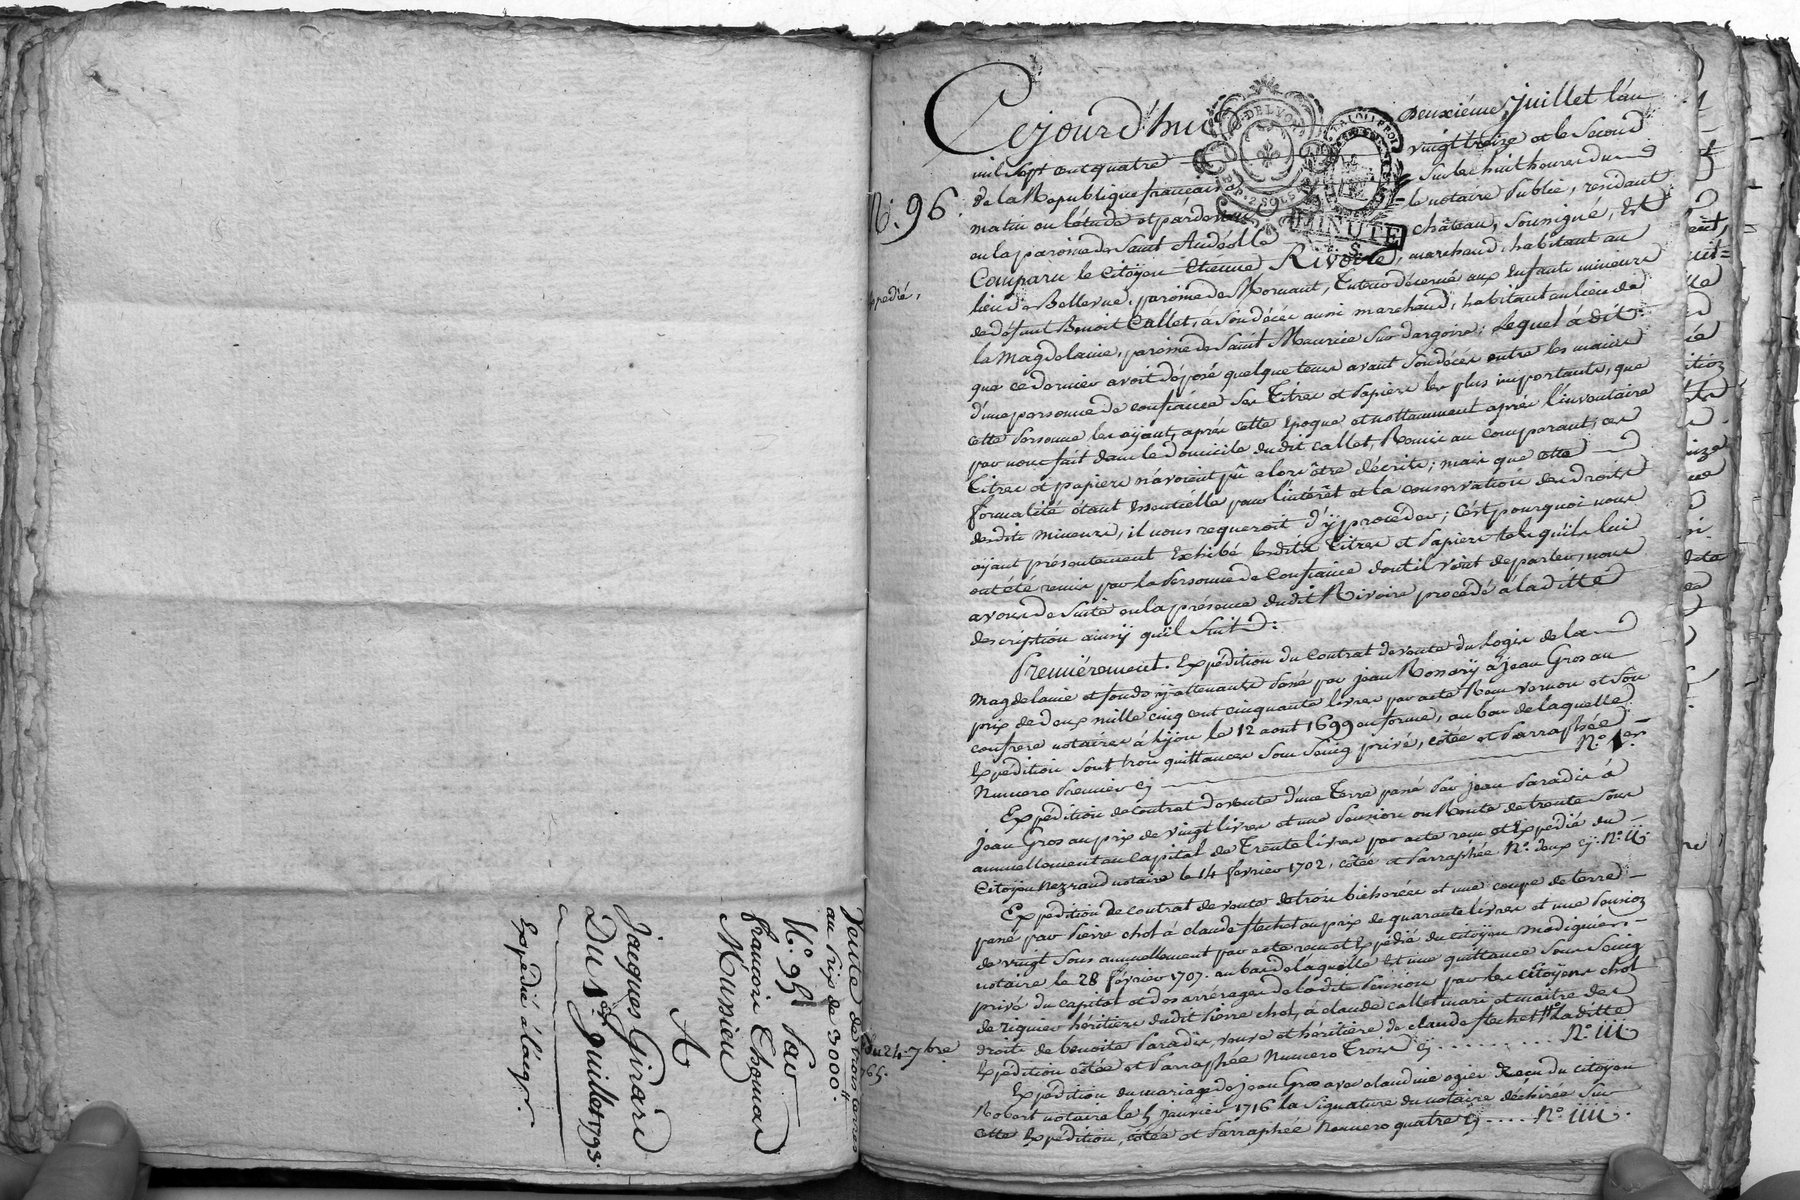 Vente de trois terres
au Prix de 3000.ll
N.o 95 Par
françois Thomas
Musieu
A
Jacques Girard
Du 1er Juillet 1793.
Expédié à l'acqr.
N.o 96.
du 24 7bre
Cejourd'hui Deuxiéme Juillet l'an
mil sept cent quatre vingt treize et le second
de la République française sur les huit heures du
matin en l'étude et pardevant le notaire Public, résidant
en la paroisse de Saint Andéol le château, soussigné, Est
Comparu le Citöyen Etienne Rivoire, marchand, habitant au
lieu de Bellevue, paroisse de Mornant, Tuteur décerné aux Enfants mineurs
de défunt Benoit Callet, à son décès aussi marchand, habitant au lieu de
la Magdelaine, paroisse de Saint Maurice sur dargoire; Lequel à dit
que ce dernier avoit déposé quelque tems avant son décès entre les mains
d'une personne de confiance ses Titres et Papiers les plus importants, que
cette Personne les aÿant, après cette Epoque et nottamment après l'inventaire
par nous fait dans le Domicile dudit Callet, Remis au comparant, ces
Titres et papiers n'avoient pû alors être décrits; mais que cette
formalité étant Essentielle pour l'intérêt et la conservation des droits
desdits Mineurs, il nous requeroit d'ÿ proceder; C'est pourquoi nous
aÿant présentement Exhibé lesdits Titres et Papiers tels qu'ils lui
ont été remis par la Personne de Confiance dont il vient de parler, nous
avons de suite en la présence dudit Rivoire procédé à la ditte
description ainsÿ qu'il suit:
Premiérement. Expédition du Contrat de vente du Logis de la
Magdelaine et fonds ÿ attenants Passé par jean à jean Gros au
prix de deux mille cinq cent cinquante livres par acte Reçu vernon et son
confrere notaires à Lÿon le 12 aout 1699 en forme, au bas de laquelle
Expédition sont trois quittances sous seing privé, côtée et Parraphée
Numero Premier Cÿ N.o 1er.
Expédition de Contrat de vente d'une Terre passé Par jean Paradis à
jean Gros au prix de vingt livres et une Pension ou Rente de trente sous
annuellement au Capital de Trente livres par acte reçu et Expédié du
Citöyen notaire le 14 février 1702, côtée et Parraphée N.o deux cÿ. N.o II
Expédition de contrat de vente de trois bicherées et une coupe de terre
passé par Pierre chol à claude flechet au prix de quarante livres et une Pension
de vingt sous annuellement par acte reçu et Expédié du Citöyen
notaire le 28 février 1707. au bas de laquelle Est une quittance sous Seing
privé du capital et des arrérages de la dite Pension par les Citöyens chol
de rignieu héritiers dudit Pierre chol, à claude callet mari et maitre des
droits de benoite Paradis, veuve et héritière de claude flechet Laditte
Expédition côtée et Parraphée Numero Trois cÿ . . . . . . . . N.o III
Expédition du mariage de jean Gros avec claudine ogier Reçu du citoyen
Robert notaire le 5 janvier 1716 la signature du notaire déchirée sur
cette Expédition, côtée et Parraphée Numero quatre Cÿ . . . . N.o IIII.